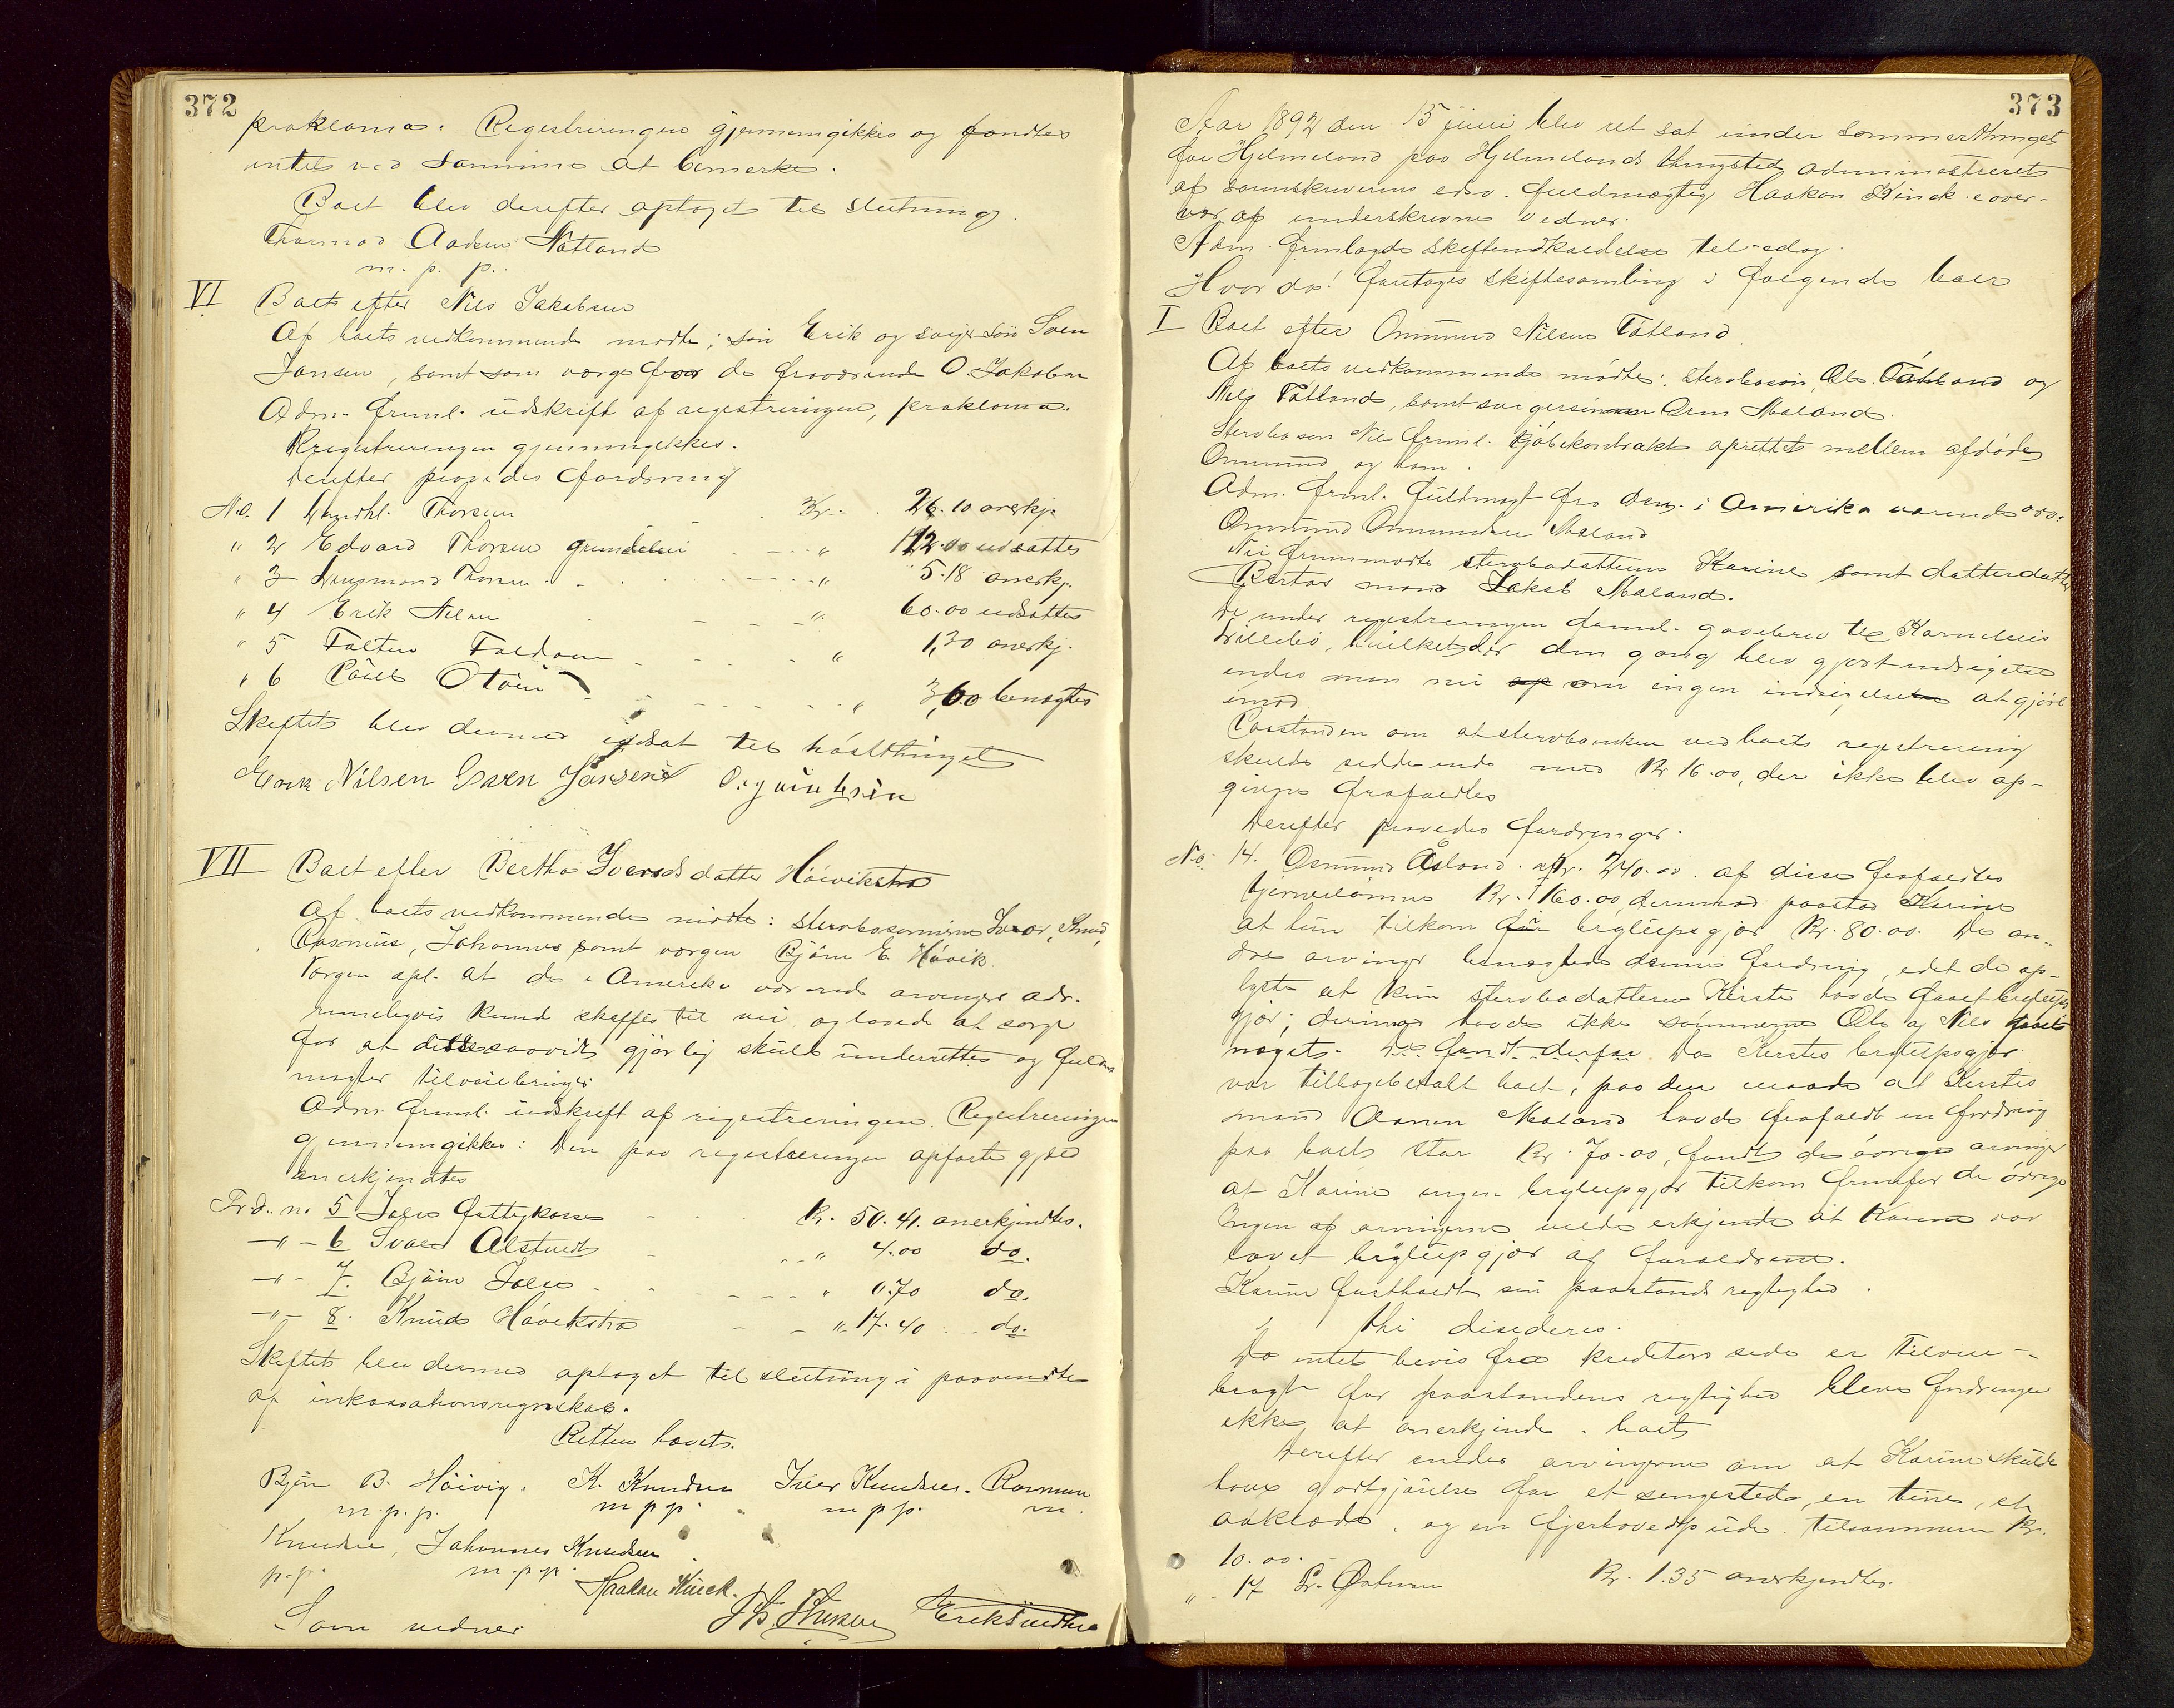 372
proklama. Regestreringen gjennemgikkes og fandtes
intet ved samme at bemerke.
Boet blev derefter optaget til slutning.
Thormod Aadnesen Natland
m. p. p.
VI Boet efter Nils Jakobsen
Af boets vedkommende mødte; søn Erik og svigersøn Sven
Jansen, samt som værge for de fraværende O. Jakobsen
Adm. freml. udskrift af regestreringen, proklama.
Regestreringen gjennemgikkes.
Derefter prøvedes fordring
No. 1 Landhl. Thorsen Kr. 26.10 anerkj.
" 2 Edvard Thorsen " 112.00 udsattes
" 3 Thorsen " 5.18 anerkj.
" 4 Erik Nilsen " 60.00 udsattes
" 5 " 1,30 anerkj.
" 6 " 3,60 benegtes
Skiftet blev dermed udsat til høstthinget
Erik Nilsen Sven Jansen
VII Boet efter Bertha Iversdatter Høivikstra
Af boets vedkommende mødte: sterbosønnerne Ivar, Knud,
Rasmus, Johannes samt værgen Bjørn E. Høvik.
Værgen opl. at de i Amerika værende arvingers adr.
rimeligvis kund skaffes til vei og lovede at sørge
for at disse saavidt gjørlig skulde underrettes og fuld-
magter tilveiebringes
Adm. freml. udskrift af regestreringen. Regestreringen
gjennemgikkes: Den paa regestreringen opførte gjæld
anerkjendtes
Frd. n. 5 Jøls fattigkasse Kr. 50.41 anerkjendtes.
—"— 6 " 4.00 do.
—"— 7. Bjørn " 0.70 do.
—"— 8. Knud Høvikstra " 17.40 do.
Skiftet blev dermed optaget til slutning i paavente
af inkassationsregnskab.
Retten hævet.
Bjørn B. Høivig. K. Knudsen Iver Knudsen. Rasmus
m. p. p. m p p. m p p. m.
Knudsen, Johannes Knudsen
p. p. m. p. p.
Haakon Kinck.
Som vidner
373
Aar 1892 den 15 juni blev ret sat under sommerthinget
for Hjelmeland paa Hjelmelands thingsted administreret
af sorenskriverens edsv. fuldmægtig Haakon Kinck i over-
vær af underskrevne vidner.
Adm. fremlagde skifteindkaldelse til idag.
Hvorda! foretoges skiftesamling i følgende boer
I Boet efter Ommund Nilsen Tøtland.
Af boets vedkommende mødte: sterbosøn, Ole Tøtland og
Nils Tøtland, samt svigersønnen Orm Maland.
Sterbosøn Nils freml. kjøbekontrakt oprettet mellem afdøde
Ommund og ham.
Adm. freml. fuldmagt fra den i Amerika værende arv.
Ommund Ommundsen Maland
Nu fremmødte sterbodatteren Karine samt datterdatter
Bertas mand Jakob Maland.
De under regestreringen freml. gavebrev til Karnelius
Lillebø, hvilket der den gang blev gjort indsigelse
endes man nu om ingen indsigelse at gjøre
imod
Paastanden om at sterboenken ved boets regestrering
skulde sidde inde med Kr. 16.00, der ikke blev op-
givne frafaldtes
Derefter prøvedes fordringer.
No. 14. Osmund Åsland Kr. 240.00. af disse frafaldtes
Kr. 160.00 derimod paastod Karine
at hun tilkom for bryllupsgjør Kr. 80.00. De an-
dre arvinger benegtede denne fordring, idet de op-
lyste at kun sterbodatteren Kirste havde faaet bryllups-
gjør; derimod havde ikke sønnerne Ole og Nils faaet
noget. De fandt derfor Da Kirstes bryllupsgjør
var tilbagebetalt boet, paa den maade at Kirstes
mand Maland havde frafaldt en fordring
paa boet stor Kr. 70.00, fandt de øvrige arvinger
at Karine ingen bryllupgjør tilkom fremfor de øvrige
Ingen af arvingerne vilde erkjende at Karine var
lovet bryllupgjør af forældrene.
Karine fastholdt sin paastands rigtighed.
thi desideres.
Da intet bevis fra kreditors side er tilveie-
bragt for paastandens rigtighed bleve fordringen
ikke at anerkjende i boet
Derefter enedes arvingerne om at Karine skulde
have godtgjørelse for et sengested, en tine, et
aaklæde, og en fjerhovedpude tilsammen Kr.
10.00.
" 17 Kr. 1.35 anerkjendtes.